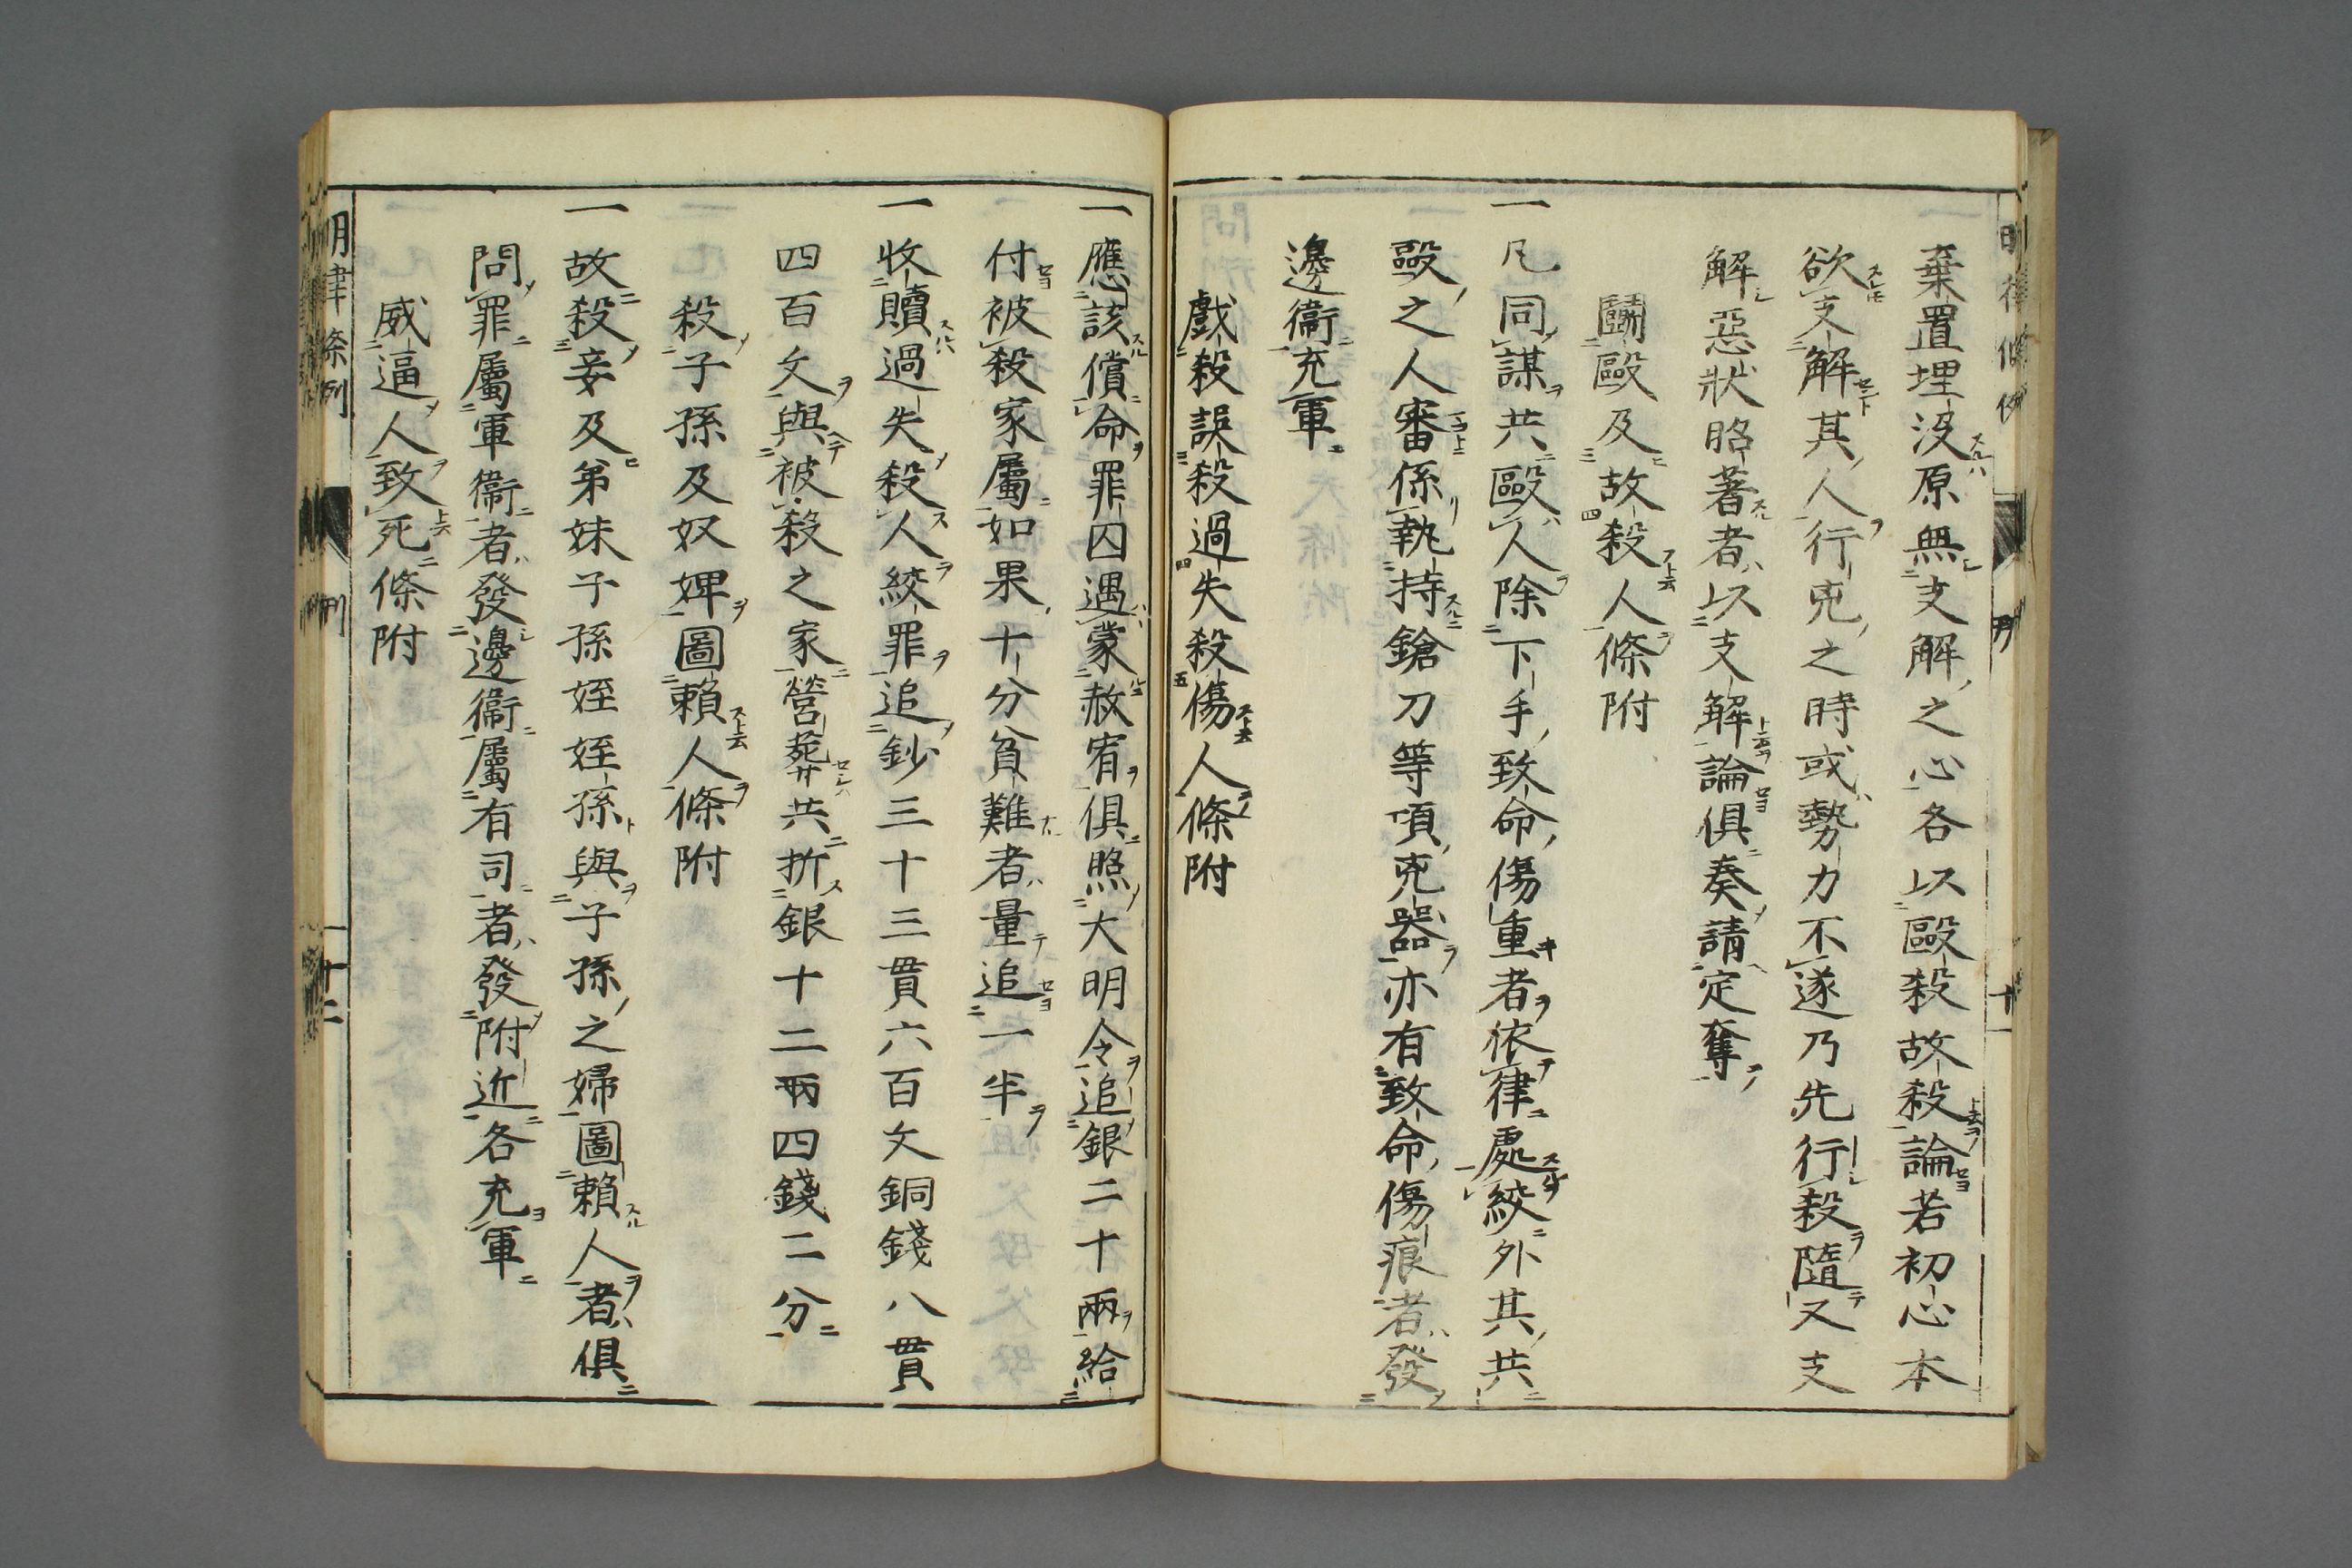 棄置埋没原無支解之心各以毆殺故殺論若初心本
欲支解其人行兇之時或勢力不遂乃先行殺隨又支
解惡狀昭著者以支解論俱奏請定奪
鬪毆及故殺人條附
一凡同謀共毆人除下手致命傷重者依律處絞外其共
毆之人審係執持鎗刀等項兇器亦有致命傷痕者發
邊衞充軍
戲殺誤殺過失殺傷人條附
一應該償命罪囚遇蒙赦宥俱照大明令追銀二十兩給
付被殺家屬如果十分貧難者量追一半
一收贖過失殺人絞罪追鈔三十三貫六百文銅錢八貫
四百文與被殺之家營葬共折銀十二兩四錢二分
殺子孫及奴婢圖賴人條附
一故殺妾及弟妹子孫姪姪孫與子孫之婦圖賴人者俱
問罪屬軍衞者發邊衞屬有司者發附近各充軍
威逼人致死條附
明律條例 刑 十二